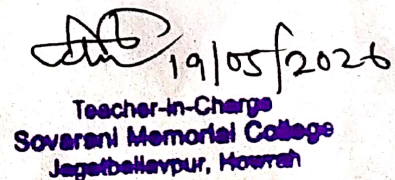 19/05/2026
Teacher-in-Charge
Sovarani Memorial College
Jagatballavpur, Howrah